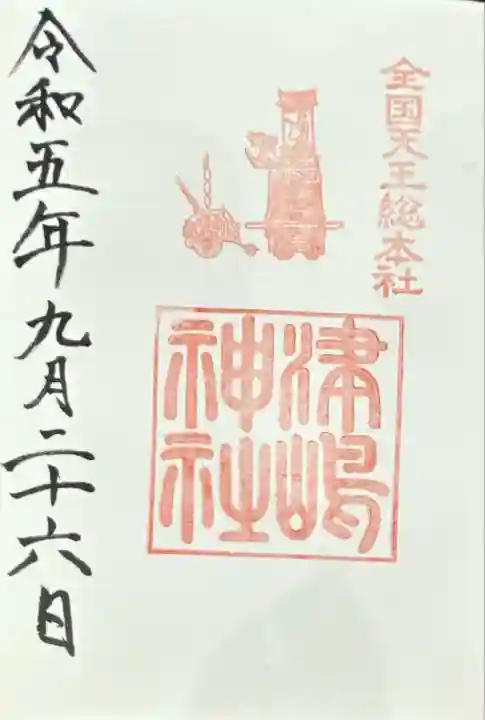 全国天王総本社
津嶋
神社
令和五年九月二十六日